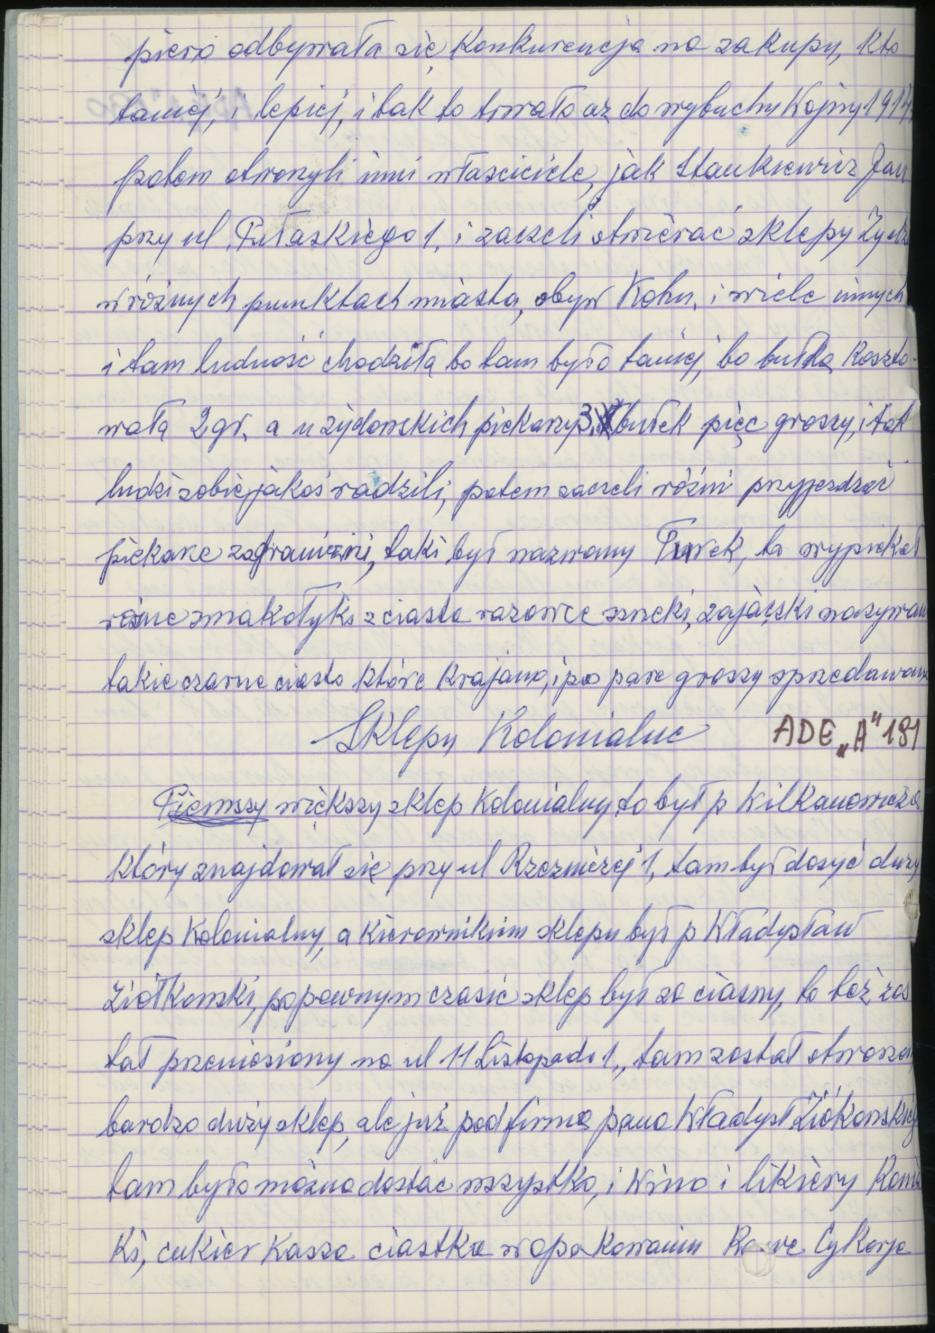 piero odbywała się Konkurencja na zakupy, kto
taniej, i lepiej, i tak to trwało aż do wybuchu Wojny 1914,
potem otworzyli inni właściciele, jak Stankiewicz Jan
przy ul. Pułaskiego 1, i zaczeli otwierać sklepy Żydzi
w różnych punktach miasta, obyw Kohn, i wiele innych
i tam ludność chodziła bo tam było taniej, bo bułka Koszto-
wała 2 gr. a u żydowskich piekarzy 3, bułek pięc groszy, i tak
ludzi sobie jakoś radzili, potem zaczeli różni przyjezdzać
piekarze zagraniczni, taki był nazwany Turek, ta wypiekał
różne smakołyki z ciasta razowce sneki, zajączki nazywano
takie czarne ciasto które Krajano, i po pare groszy sprzedawano
Sklepy Kolonialne ADE „A" 181
Pierwszy większy sklep Kolonialny to był p Wilkanowicza
który znajdował się przy ul Rzeźniczej 1, tam był dosyć duży
sklep Kolonialny, a Kierownikiem sklepu był p Władysław
Ziółkowski, po pewnym czasie sklep był za ciasny, to też zos
tał przeniesiony na ul 11 Listopada 1,, tam został otworzon
bardzo duży sklep, ale już pod firmą pana Władysł Ziókowskiego
tam było można dostać wszystko, i Wino i likiery Konia
Ki, cukier Kasza ciastka w opakowaniu Kawe Cykorje